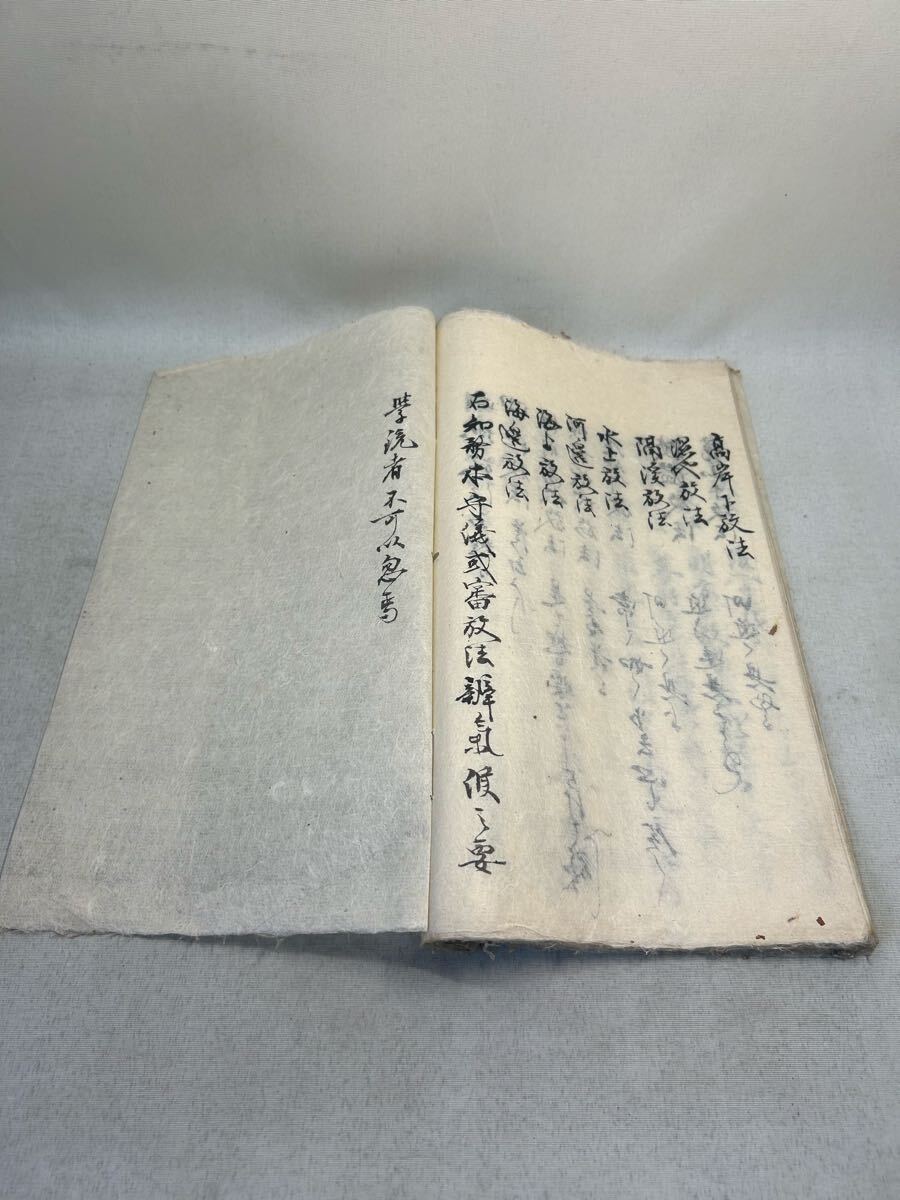 高岸下放法
深代放法
隔溪放法
水上放法
河邊放法
海上放法
海邊放法
右知勢本守儀或審放法辨氣候之要
学流者不可以忽焉